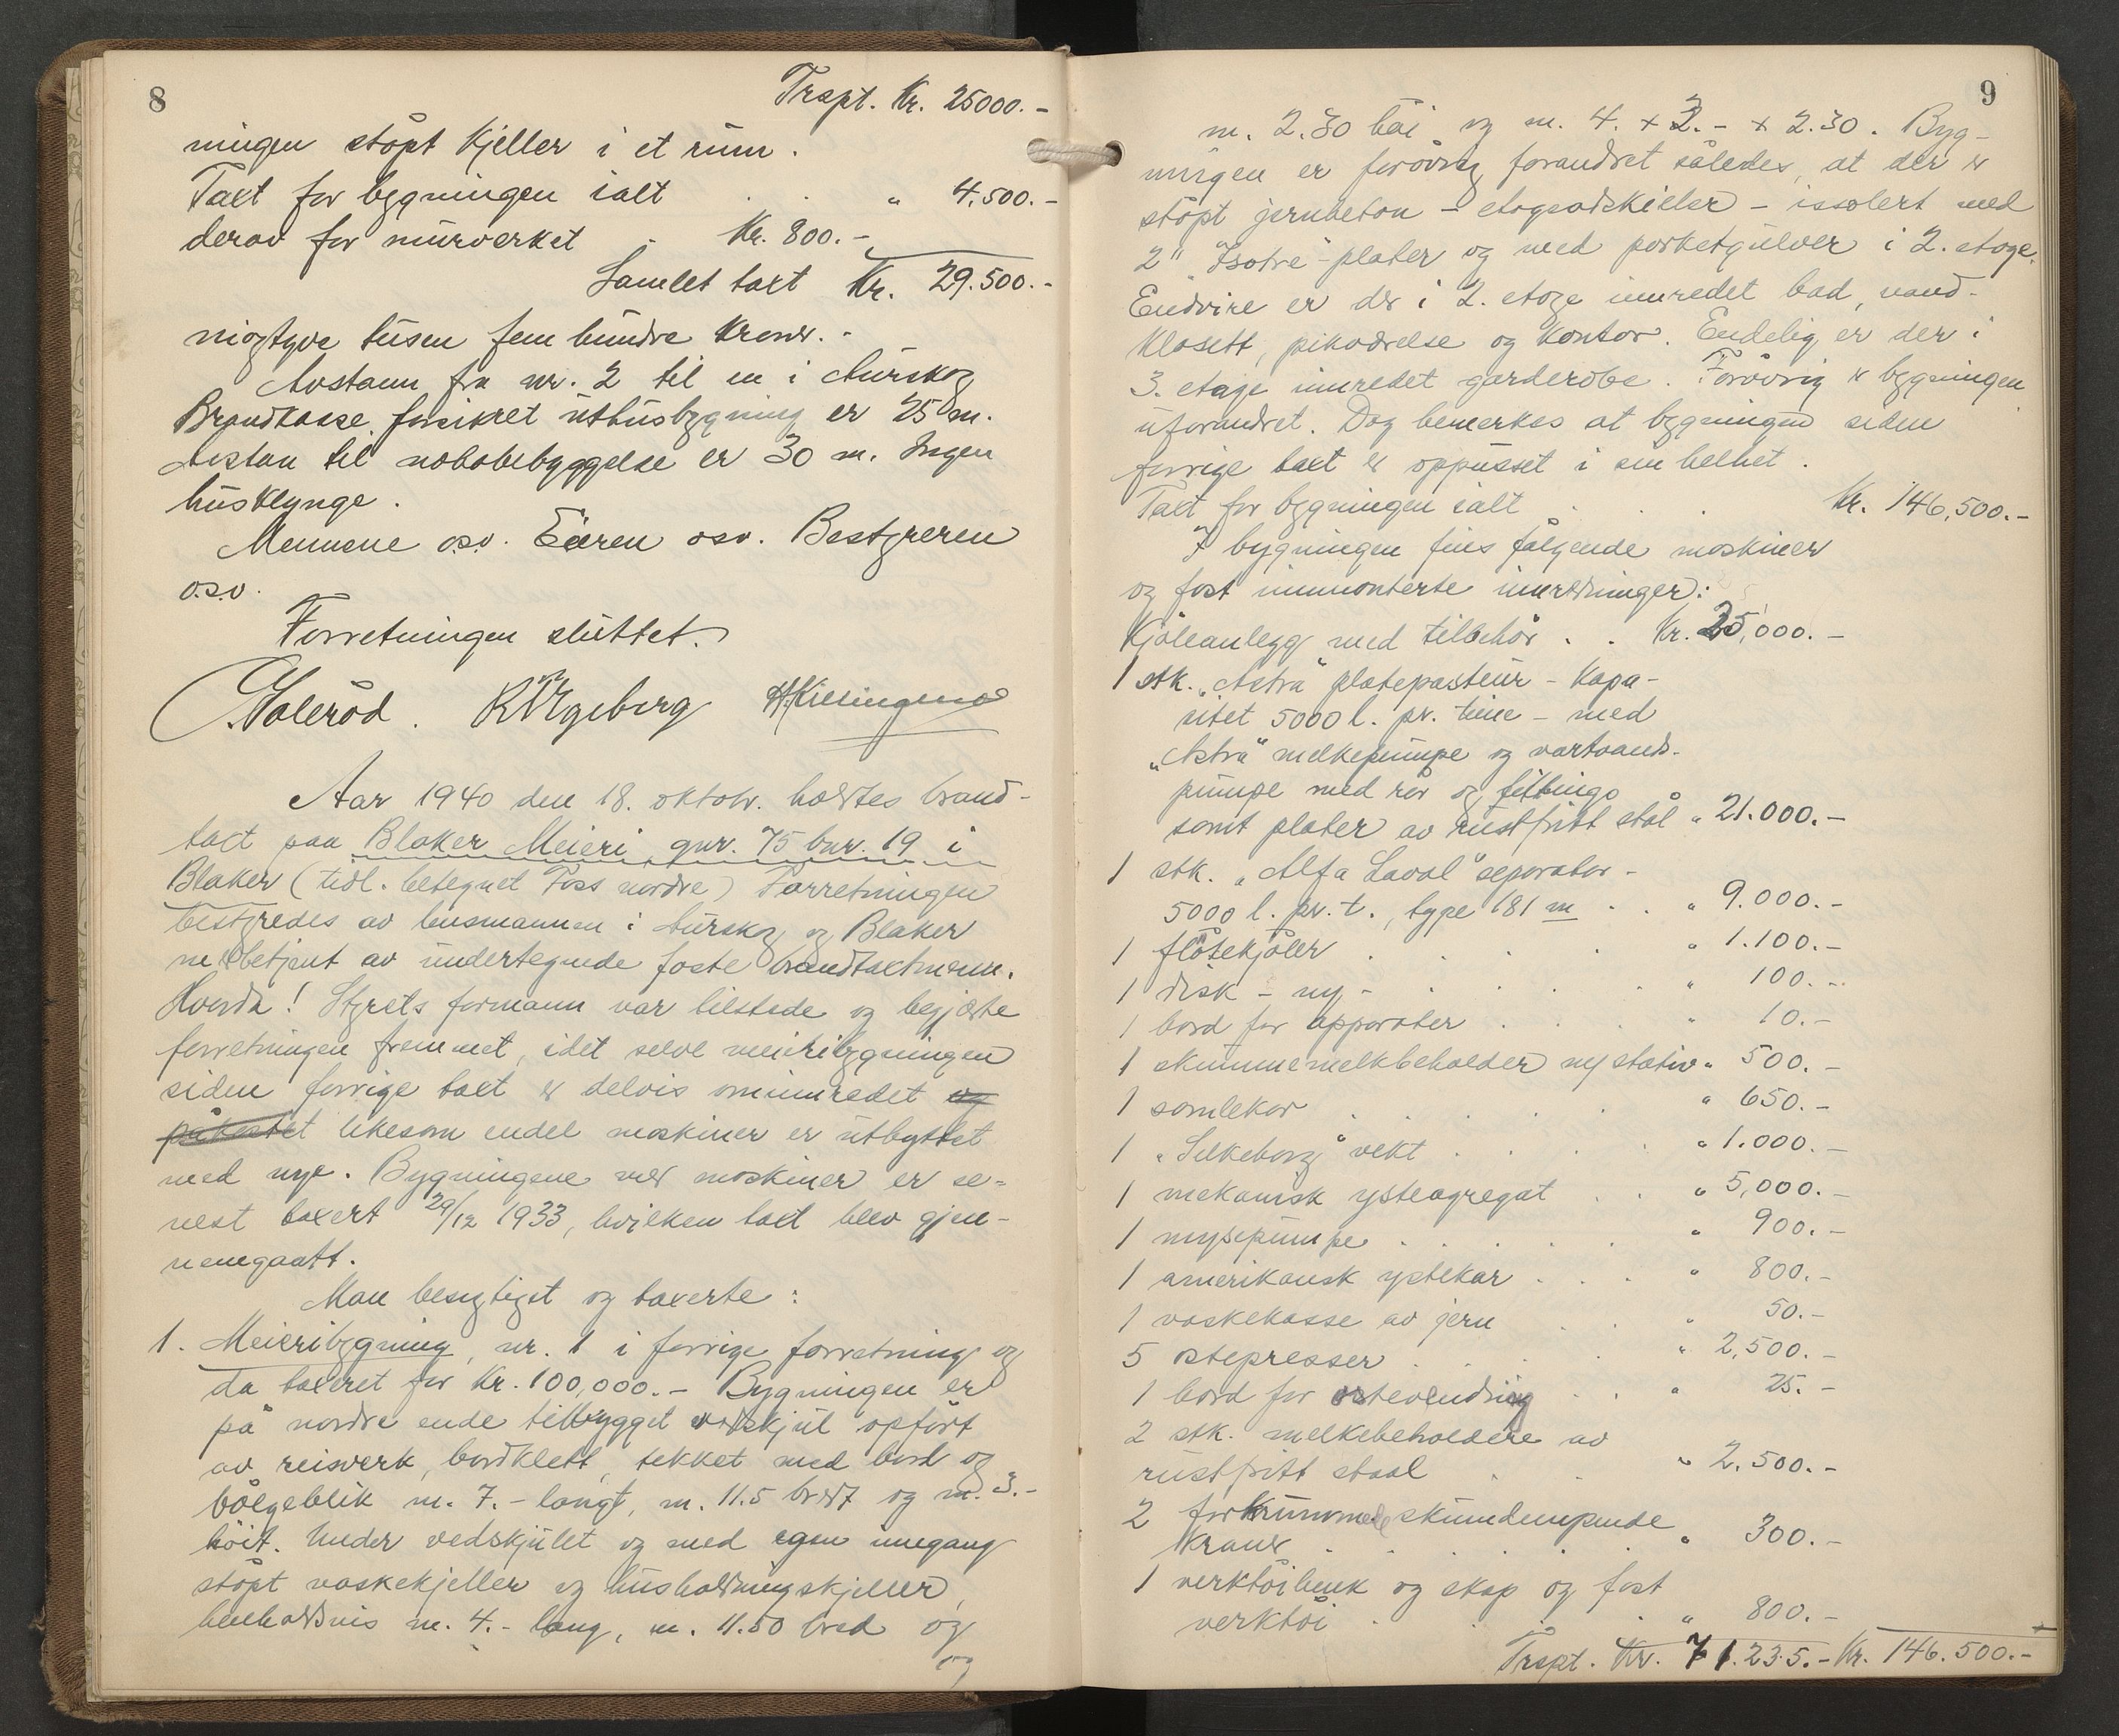 8
Trspt. Kr. 25000.-
ningen støpt kjeller i et rum.
Taxt for bygningen ialt . . " 4.500.-
derav for murverket . Kr. 800.-
Samlet taxt Kr. 29.500.-
niogtyve tusen fem hundre kroner.-
Avstann fra nr. 2 til en i Aurskog
Brandkasse forsikret uthusbygning er 25 m.
Avstan til nabobebyggelse er 30 m. Ingen
husklynge.
Mennene o.s.v. Eieren osv. Bestyreren
o.s.v.
Forretningen sluttet.
Aar 1940 den 18. oktobr. holdtes brand-
taxt paa Blaker Meieri, gnr. 75 bnr. 19 i
Blaker (tidl. betegnet Foss nordre) Forretningen
bestyredes av lensmannen i Aurskog og Blaker
med betjent av undertegnede faste brandtaxtmenn.
Hvorda! Styrets formann var tilstede og begjærte
forretningen fremmet, idet selve meieribygningen
siden forrige taxt er delvis ominnredet og
påkostet likesom endel maskiner er utbyttet
med nye. Bygningene med maskiner er se-
nest taxert 29/12 1933, hvilken taxt blev gjen-
nemgaatt.
Man besigtiget og taxerte:
1. Meieribygning, nr. 1 i forrige forretning og
da taxeret for Kr. 100,000.- Bygningen er
på nordre ende tilbygget vedskjul opført
av reisverk, bordklett, tekket med bord og
bølgeblik m. 7.- langt, m. 11.5 bredt og m. 3.-
høit. Under vedskjulet og med egen inngang
støpt vaskekjeller og husholdningskjeller,
henholdsvis m. 4.- lang, m. 11.50 bred og
og
9
m. 2.30 høi og m. 4. x 2.- x 2.30. Byg-
ningen er forøvrig forandret således, at der er
støpt jernbeton - etageadskiller - issolert med
2" "Isotre"-plater og med parketgulver i 2. etage.
Endvire er der i 2. etage innredet bad, vand-
klosett, pikeværelse og kontor. Endelig er der i
3. etage innredet garderobe. Forøvrig er bygningen
uforandret. Dog bemerkes at bygningen siden
forrige taxt er oppusset i sin helhet.
Taxt for bygningen ialt . . . Kr. 146,500.-
I bygningen fins følgende maskiner
og fast innmonterte innredninger:
Kjøleanlegg med tilbehør . . Kr. 25,000.-
1 stk. "Astra" platepasteur - kapa-
sitet 5000 l. pr. time - med
"Astra" melkepumpe og vartvands-
pumpe med rør og fittings
samt plater av rustfritt stål " 21.000.-
1 stk. "Alfa Laval" separator -
5000 l. pr. t., type 181 m . . " 9.000.-
1 fløtekjøler . . . . " 1.100.-
1 disk - ny - . . . . " 100.-
1 bord for apparater . . . " 10.-
1 skummemelkbeholder m/ stativ " 500.-
1 samlekar . . . . . " 650.-
1 "Silkeborg" vekt . . . . " 1.000.-
1 mekanisk ysteagregat . . " 5,000.-
1 mysepumpe . . . . . " 900.-
1 amerikansk ystekar . . . " 800.-
1 vaskekasse av jern . . . " 50.-
5 ostepresser . . . . " 2,500.-
1 bord for ostevending . . " 25.-
2 stk. melkebeholdere av
rustfritt staal . . " 2.500.-
2 forkrummede skumdempende
kraner . . . . . " 300.-
1 verktøibenk og skap og fast
verktøi . . . " 800.-
Trspt. Kr. 71.235.- Kr. 146.500.-